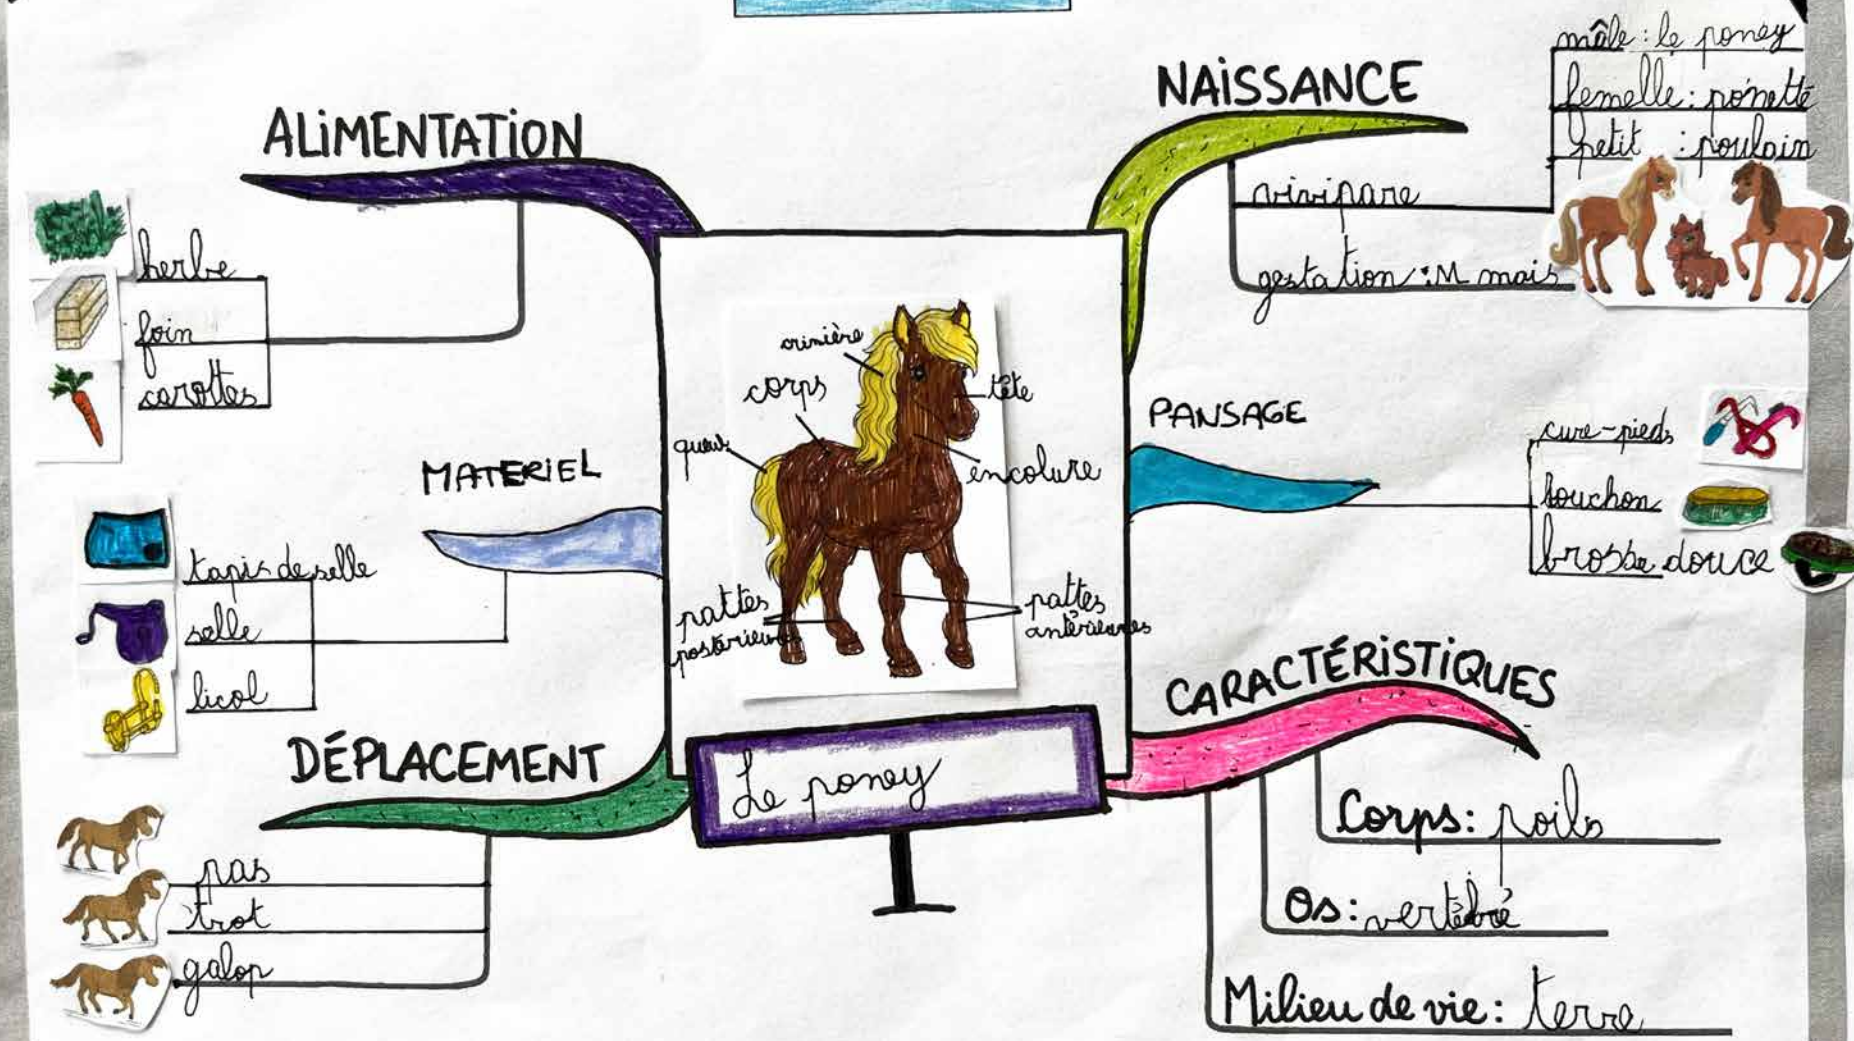 ALIMENTATION
herbe
foin
carottes
MATERIEL
tapis de selle
selle
licol
DÉPLACEMENT
pas
trot
galop
crinière
corps
queue
tête
encolure
pattes
postérieures
pattes
antérieures
Le poney
NAISSANCE
mâle : le poney
femelle : ponette
petit : poulain
vivipare
gestation : 11 mois
PANSAGE
cure-pieds
bouchon
brosse douce
CARACTÉRISTIQUES
Corps : poils
Os : vertébré
Milieu de vie : terre